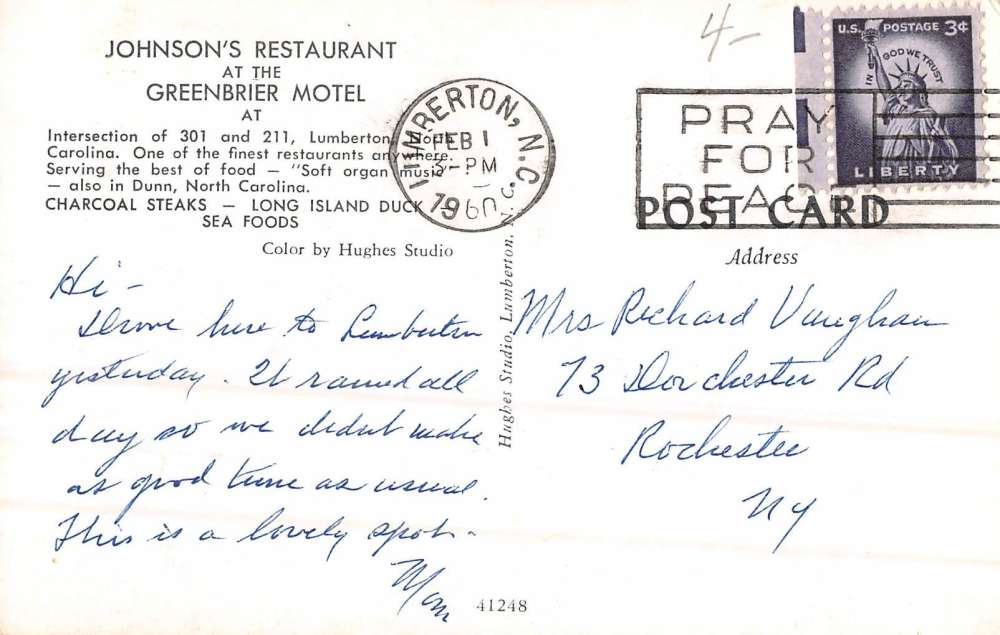 JOHNSON'S RESTAURANT
AT THE
GREENBRIER MOTEL
AT
Intersection of 301 and 211, Lumberton, North
Carolina. One of the finest restaurants anywhere.
Serving the best of food — "Soft organ music"
— also in Dunn, North Carolina.
CHARCOAL STEAKS — LONG ISLAND DUCK
SEA FOODS
Color by Hughes Studio
Hi –
Drove here to Lumberton
yesterday. It rained all
day so we didn't make
as good time as usual.
This is a lovely spot –
Mom
41248
Hughes Studio, Lumberton, N.C.
LUMBERTON, N.C.
FEB 1
3-PM
1960
4–
PRAY
FOR
PEACE
U.S. POSTAGE 3¢
IN GOD WE TRUST
LIBERTY
POST CARD
Address
Mrs Richard Vaughan
73 Dorchester Rd
Rochester
NY